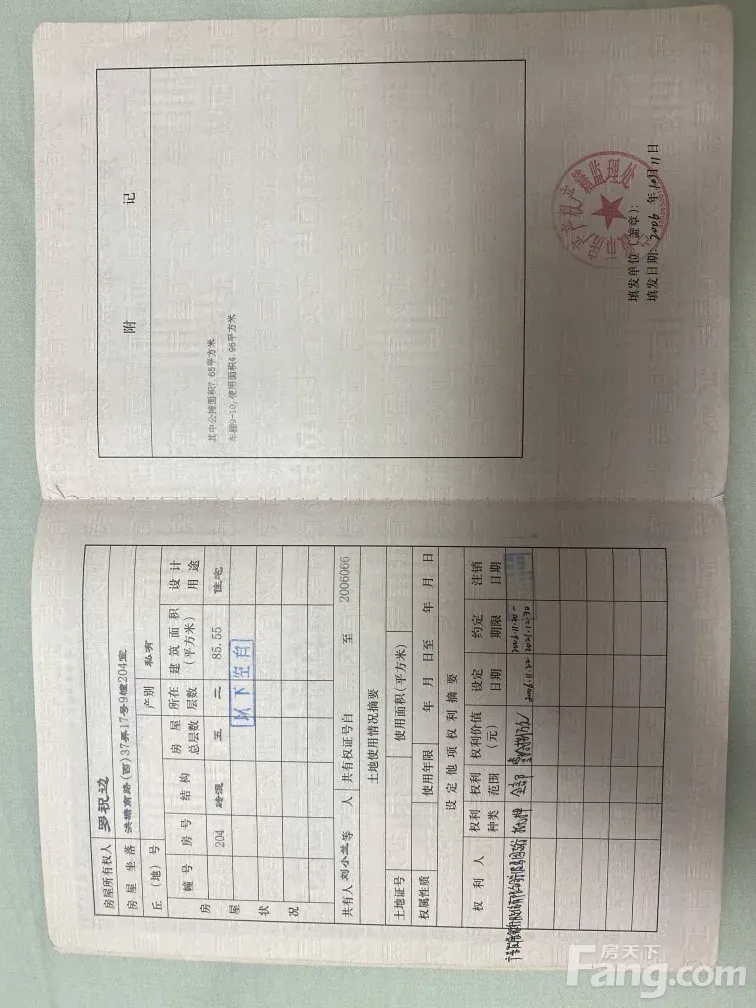 房屋所有权人 罗祝边
房屋坐落 洪塘南路(西)37弄17号9幢204室
丘(地)号 产别 私有
房屋状况
幢号 房号 结构 房屋总层数 所在层数 建筑面积(平方米) 设计用途
204 砖混 五 二 85.55 住宅
以下空白
共有人 刘小兰等 人 共有权证号自 至 2006066
土地使用情况摘要
土地证号 使用面积(平方米)
权属性质 使用年限 年 月 日至 年 月 日
设定他项权利摘要
权利人 权利种类 权利范围 权利价值(元) 设定日期 约定期限 注销日期
抵押 全部 2006.11.22 2006.11.20-2021.12.30
附 记
其中公摊面积7.65平方米
车棚9-10,使用面积4.96平方米
产权产籍监理处
填发单位(盖章):
填发日期: 2006 年 10 月 11 日
房天下
Fang.com